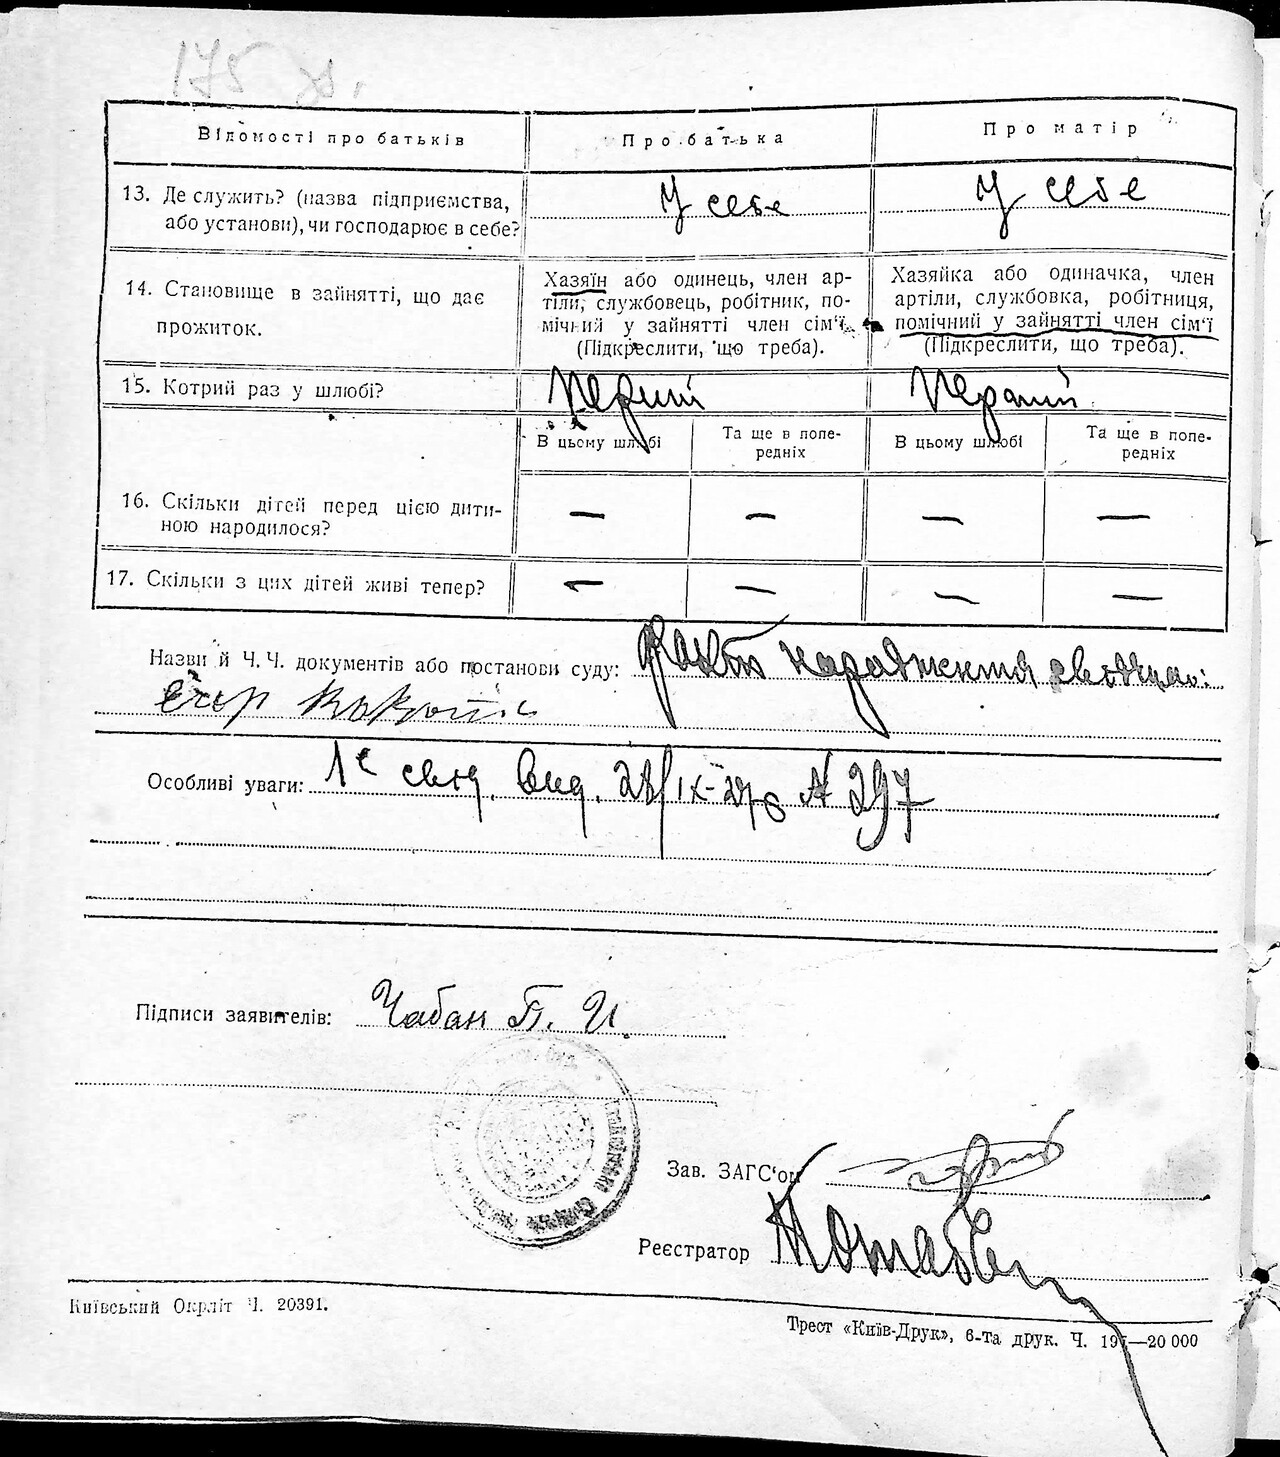 175 зв.
Відомості про батьків
Про батька
Про матір
13. Де служить? (назва підприємства,
або установи), чи господарює в себе?
У себе
У себе
14. Становище в зайнятті, що дає
прожиток.
Хазяїн або одинець, член ар-
тіли, службовець, робітник, по-
мічний у зайнятті член сім'ї.
(Підкреслити, що треба).
Хазяйка або одиначка, член
артіли, службовка, робітниця,
помічний у зайнятті член сім'ї
(Підкреслити, що треба).
15. Котрий раз у шлюбі?
Перший
Перший
В цьому шлюбі
Та ще в попе-
редніх
В цьому шлюбі
Та ще в попе-
редніх
16. Скільки дітей перед цією дити-
ною народилося?
— — — —
17. Скільки з цих дітей живі тепер?
— — — —
Назви й Ч. Ч. документів або постанови суду: Факт народження
Єгор
Особливі уваги: 1е свід. вид. IX- № 297
Підписи заявителів: Чабан П. И.
Зав. ЗАГС'ом
Реєстратор
Київський Окрліт Ч. 20391.
Трест «Київ-Друк», 6-та друк. Ч. —20 000